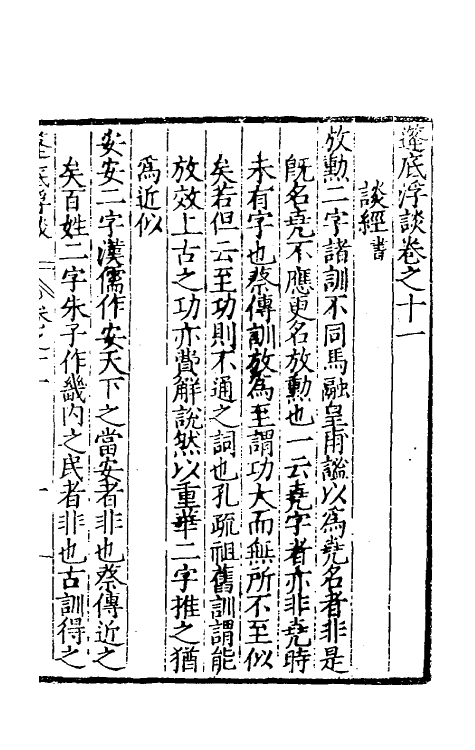 篷底浮談卷之十一
談經書
放勳二字諸訓不同馬融皇甫謐以爲堯名者非是
旣名堯不應更名放勳也一云堯字者亦非堯時
未有字也蔡傳訓放爲至謂功大而無所不至似
矣若但云至功則不通之詞也孔疏祖舊訓謂能
放效上古之功亦費解說然以重華二字推之猶
爲近似
安安二字漢儒作安天下之當安者非也蔡傳近之
矣百姓二字朱子作畿內之民者非也古訓得之